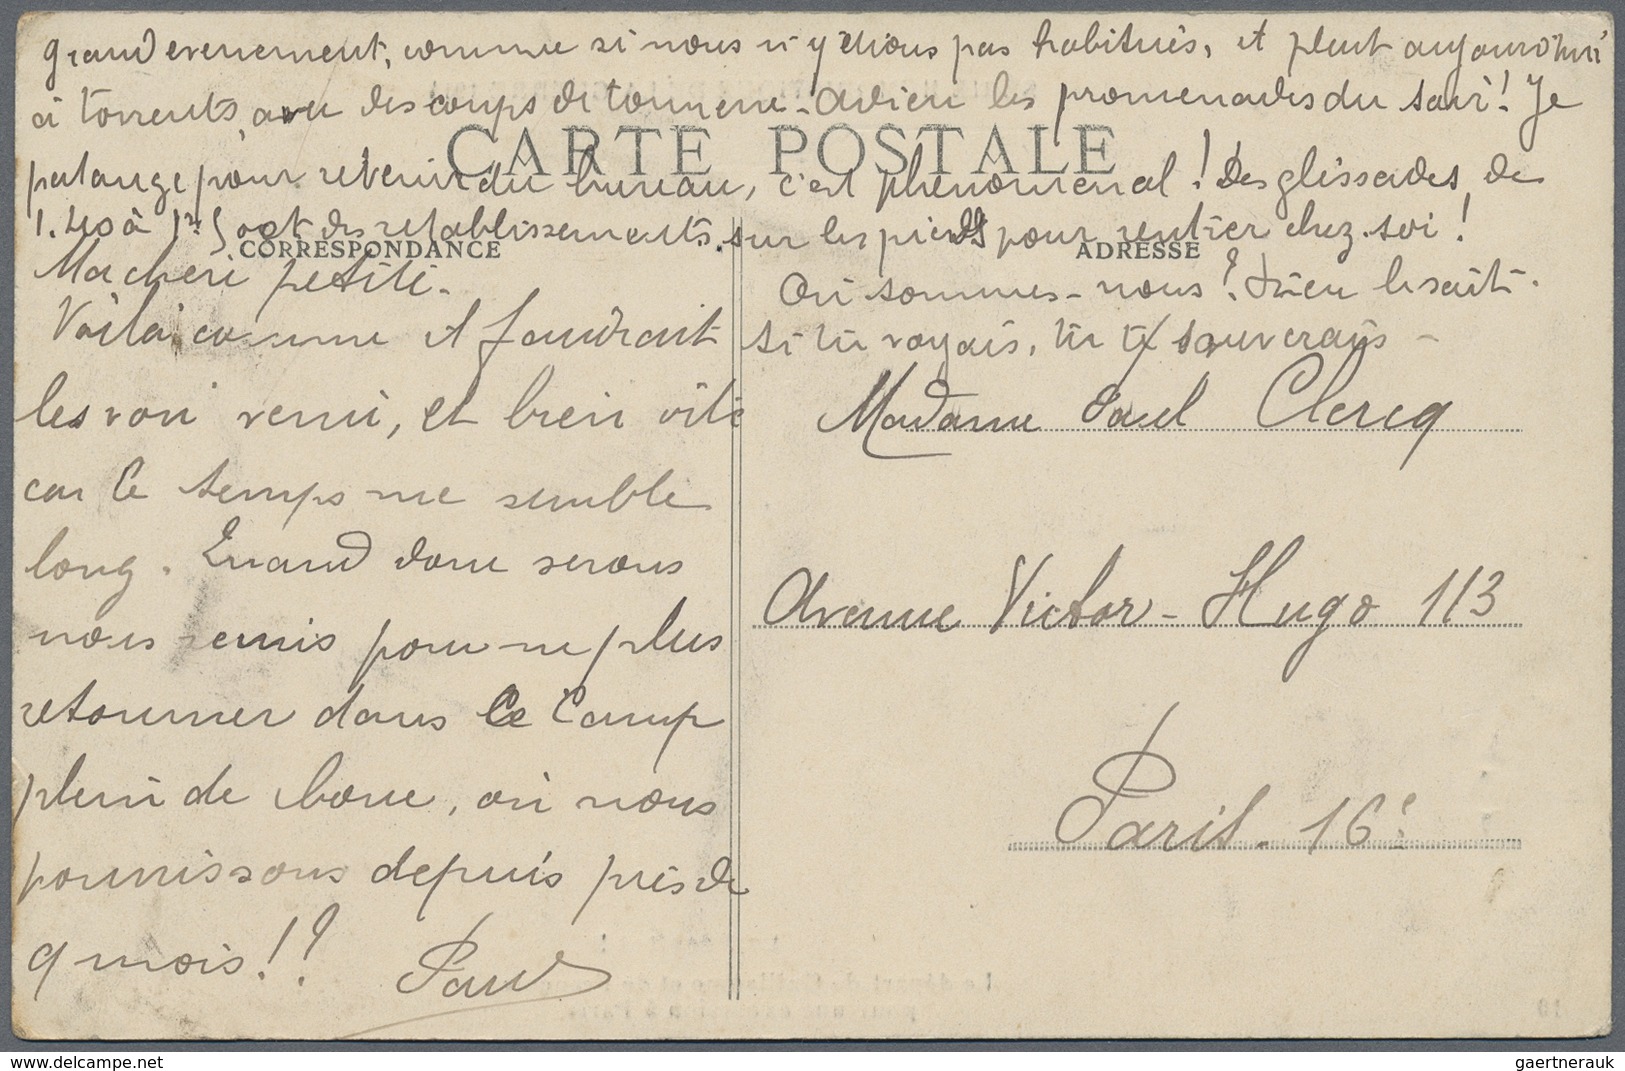 grand evenement, comme si nous n'y étions pas habitués, et pleut aujourd'hui
à torrents, avec des coups de tonnerre - adieu les promenades du soir! Je
CARTE POSTALE
patauge pour revenir du bureau, c'est phénoménal! Des glissades de
1.40 à et des retablissements sur les pieds pour rentrer chez-soi!
CORRESPONDANCE
ADRESSE
Ma cheri petite -
Où sommes-nous? Dieu le sait.
Voilà comme il faudrait
si tu voyais, tu te sauverais -
les voir venir, et bien vite
Madame Paul Clercq
car le temps me semble
long. Quand donc serons
Avenue Victor-Hugo 113
nous remis pour ne plus
retourner dans le Camp
plein de boue, où nous
Paris. 16e
pourrissons depuis près de
9 mois!? Paul
delcampe.net
gaertnerauk